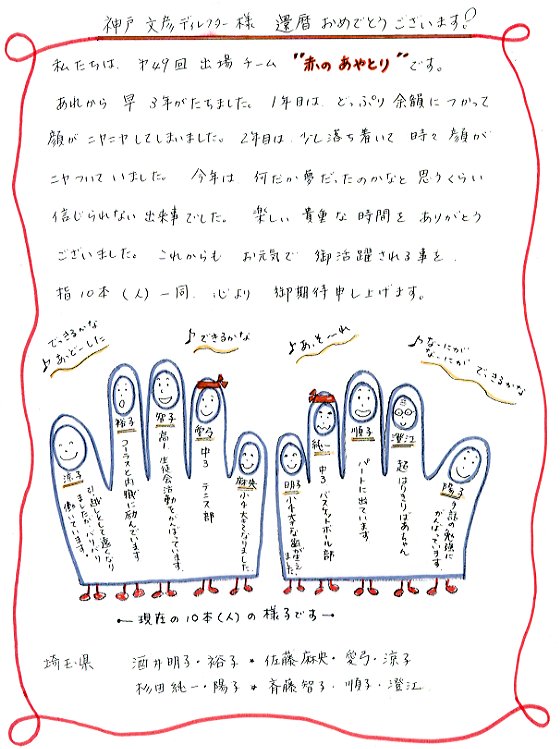 神戸 文彦ディレクター様 還暦 おめでとうございます!
私たちは、第49回 出場チーム "赤のあやとり"です。
あれから 早 3年がたちました。1年目は、どっぷり 余韻につかって
顔が ニヤニヤしてしまいました。2年目は、少し落ち着いて 時々 顔が
ニヤついていました。 今年は 何だか夢だったのかなと 思うくらい
信じられない出来事でした。 楽しい貴重な時間を ありがとう
ございました。これからも お元気で 御活躍される事を、
指10本(人)一同、心より 御期待申し上げます。
でっきるかな
♪あ、どーした
♪できるかな
♪あ、そ〜れ
♪な〜にがな〜にが でっきるかな
涼子
引越しをして遠くなりましたがバリバリ働いています。
裕子
コーラスと内職に励んでいます
智子
高1 生徒会活動をがんばっています。
愛弓
中3 テニス部
麻央
小4 大きくなりました
明子
小4 大きな歯が生えました。
純一
中3 バスケットボール部
順子
パートに出ています
澄江
超はりきりばあちゃん
陽子
手話の勉強にがんばっています。
現在の10本(人)の様子です
埼玉県 酒井明子・裕子 * 佐藤麻央・愛弓・涼子
杉田純一・陽子 * 斉藤智子・順子・澄江